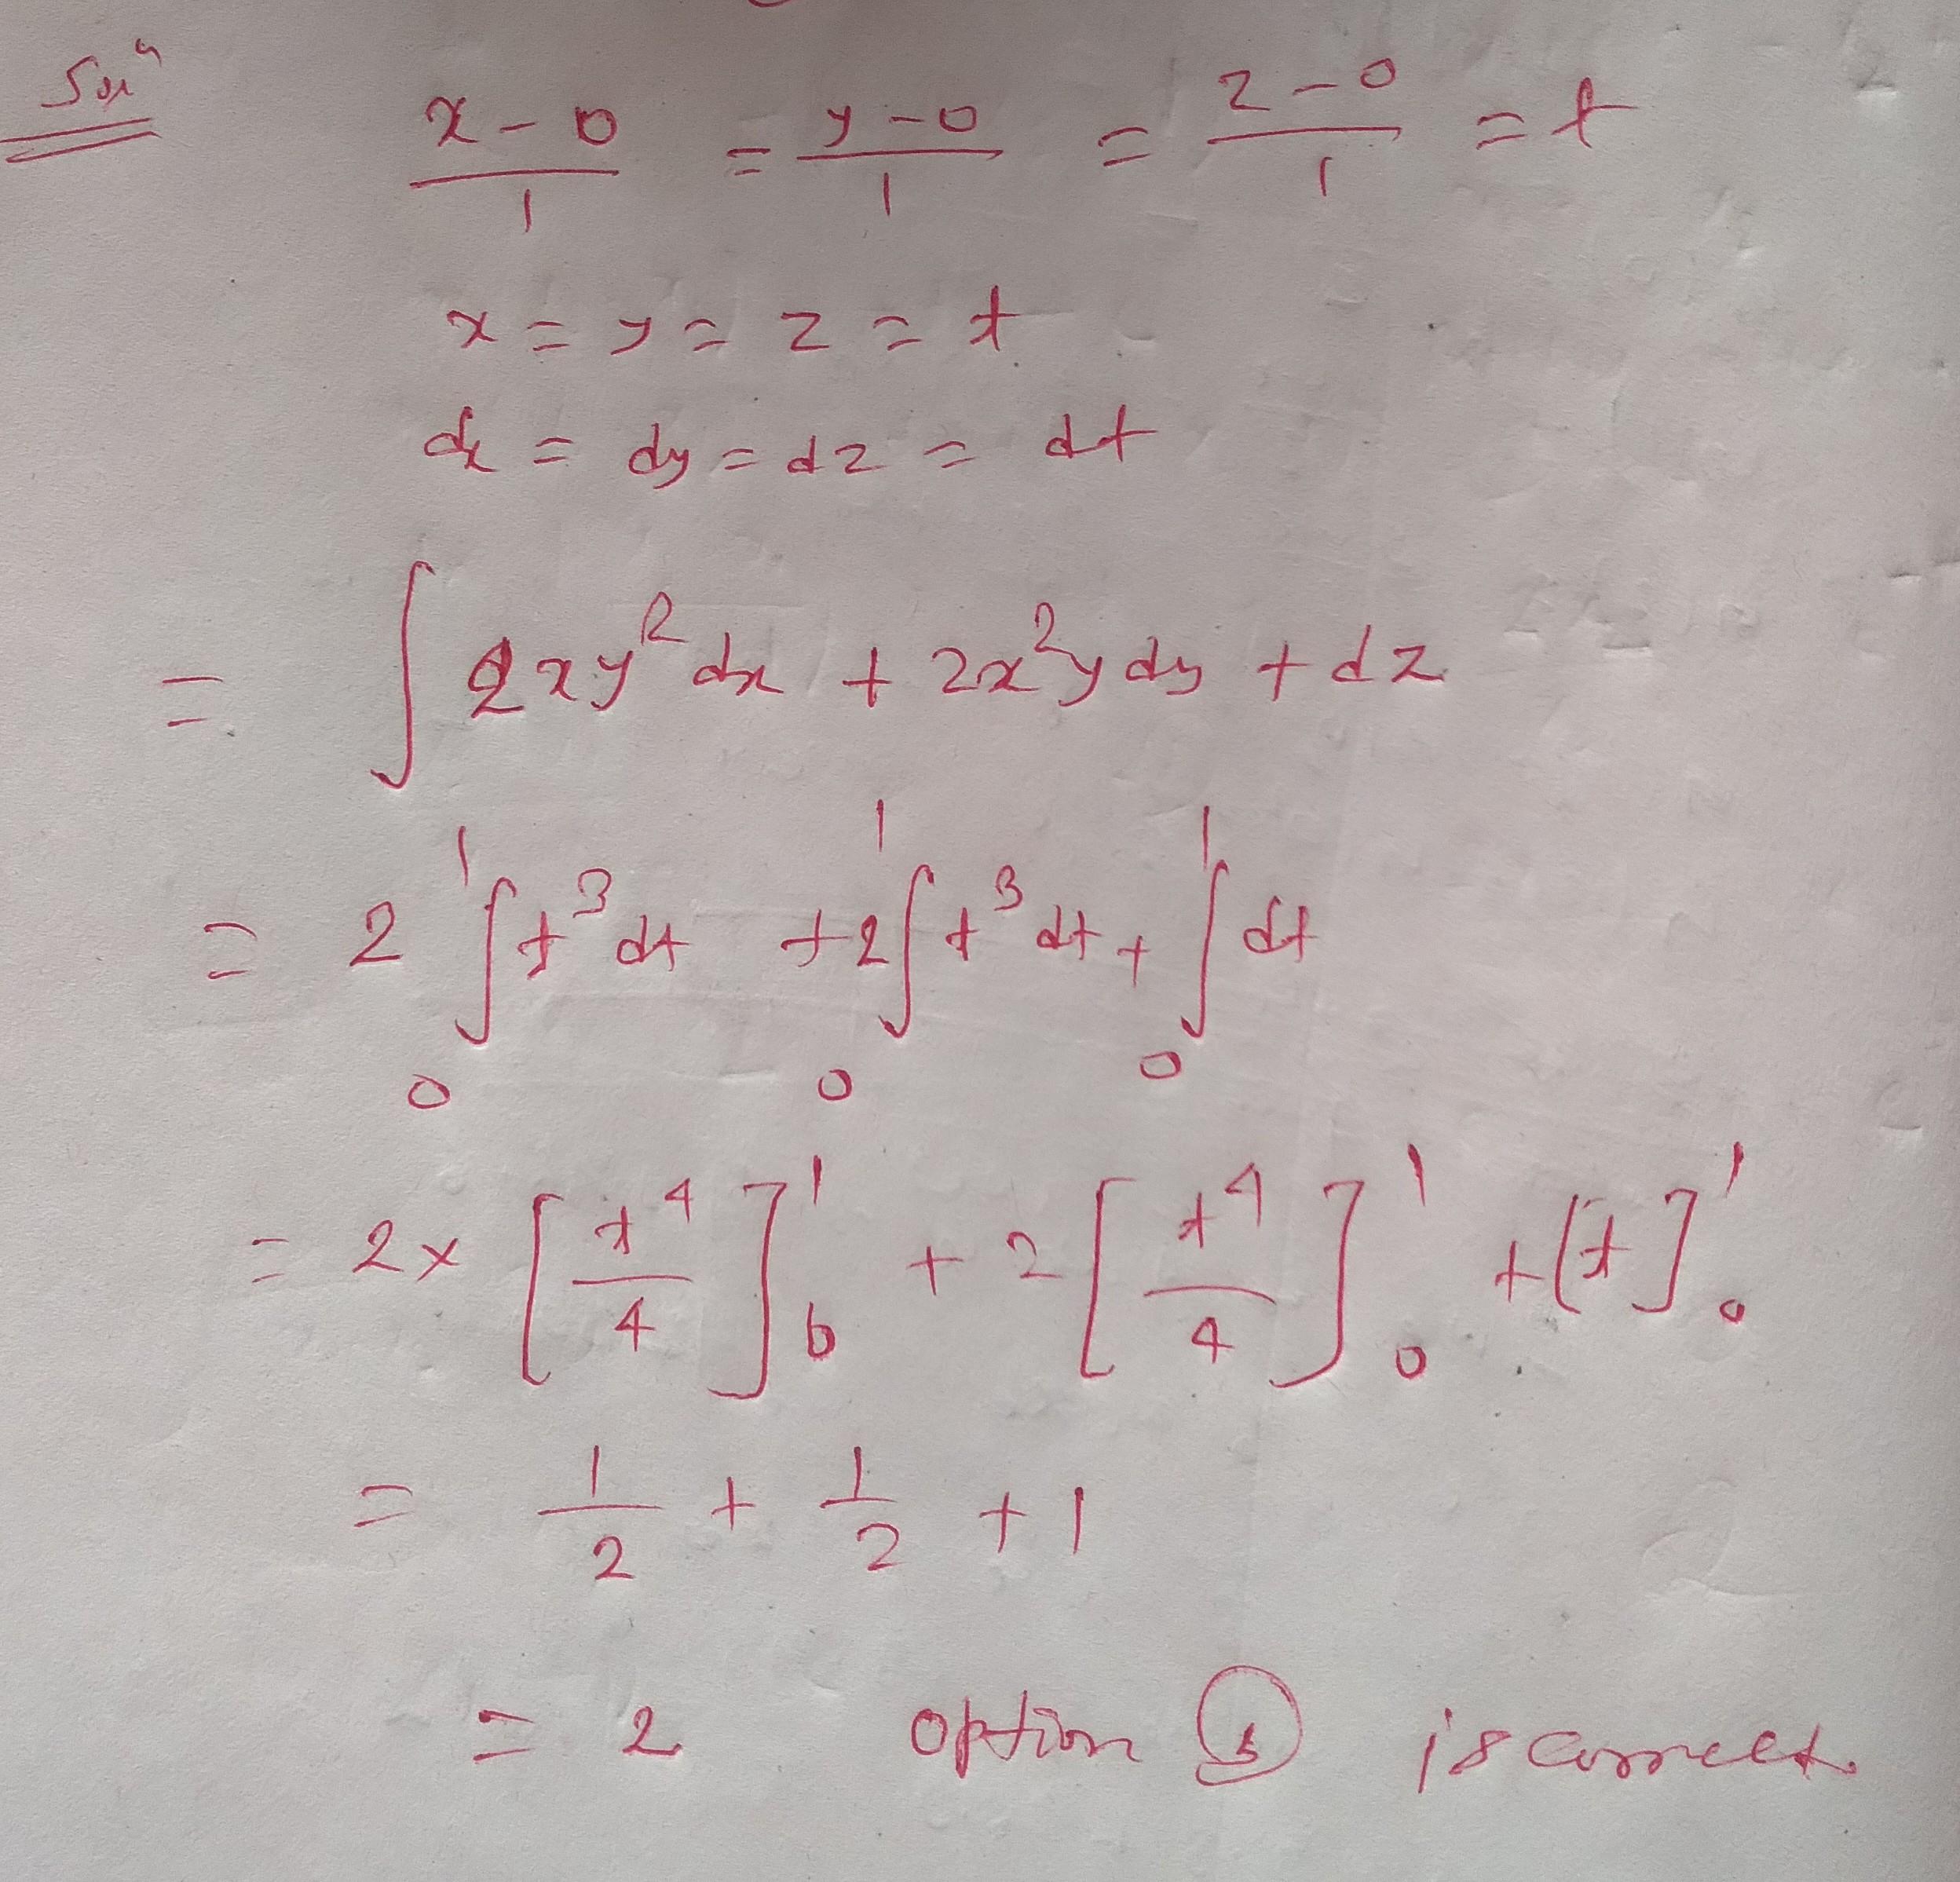 Solⁿ
x-0/1 = y-0/1 = z-0/1 = t
x = y = z = t
dx = dy = dz = dt
= ∫ 2xy² dx + 2x²y dy + dz
= 2 ∫₀¹ t³ dt + 2 ∫₀¹ t³ dt + ∫₀¹ dt
= 2 × [t⁴/4]₀¹ + 2 [t⁴/4]₀¹ + [t]₀¹
= 1/2 + 1/2 + 1
= 2 option is correct.